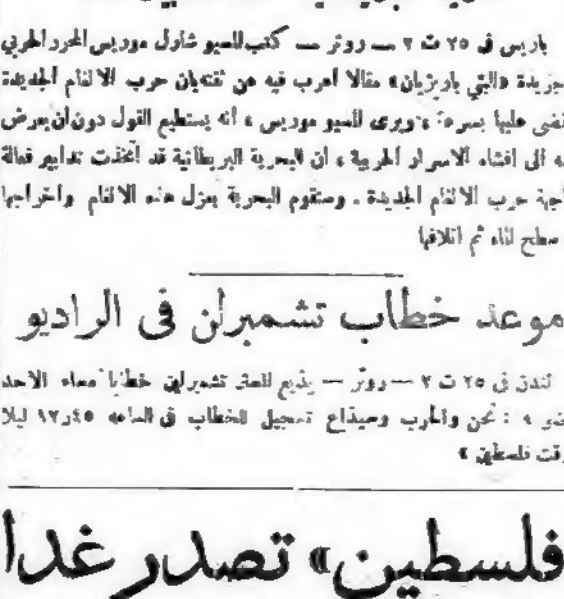 باريس في ٢٥ ت ٢ — روتر — كتب المسيو شارل موريس المحرر الحربي
جريدة «البتي باريزيان» مقالا أعرب فيه عن ثقته بان حرب الالغام الجديدة
يقضى عليها بسرعة ويرى المسيو موريس ، أنه يستطيع القول دون ان يعرض
به الى افشاء الاسرار الحربية ، أن البحرية البريطانية قد أتخذت تدابير فعالة
لمواجهة حرب الالغام الجديدة . وستقوم البحرية بعزل هذه الالغام واخراجها
سطح الماء ثم اتلافها
موعد خطاب تشمبرلن في الراديو
لندن في ٢٥ ت ٢ — روتر — يذيع المستر تشمبرلين خطابا مساء الاحد
: نحن والحرب وسيذاع تسجيل للخطاب في الساعة ١٢٫٤٥ ليلا
وقت فلسطين »
فلسطين» تصدر غدا